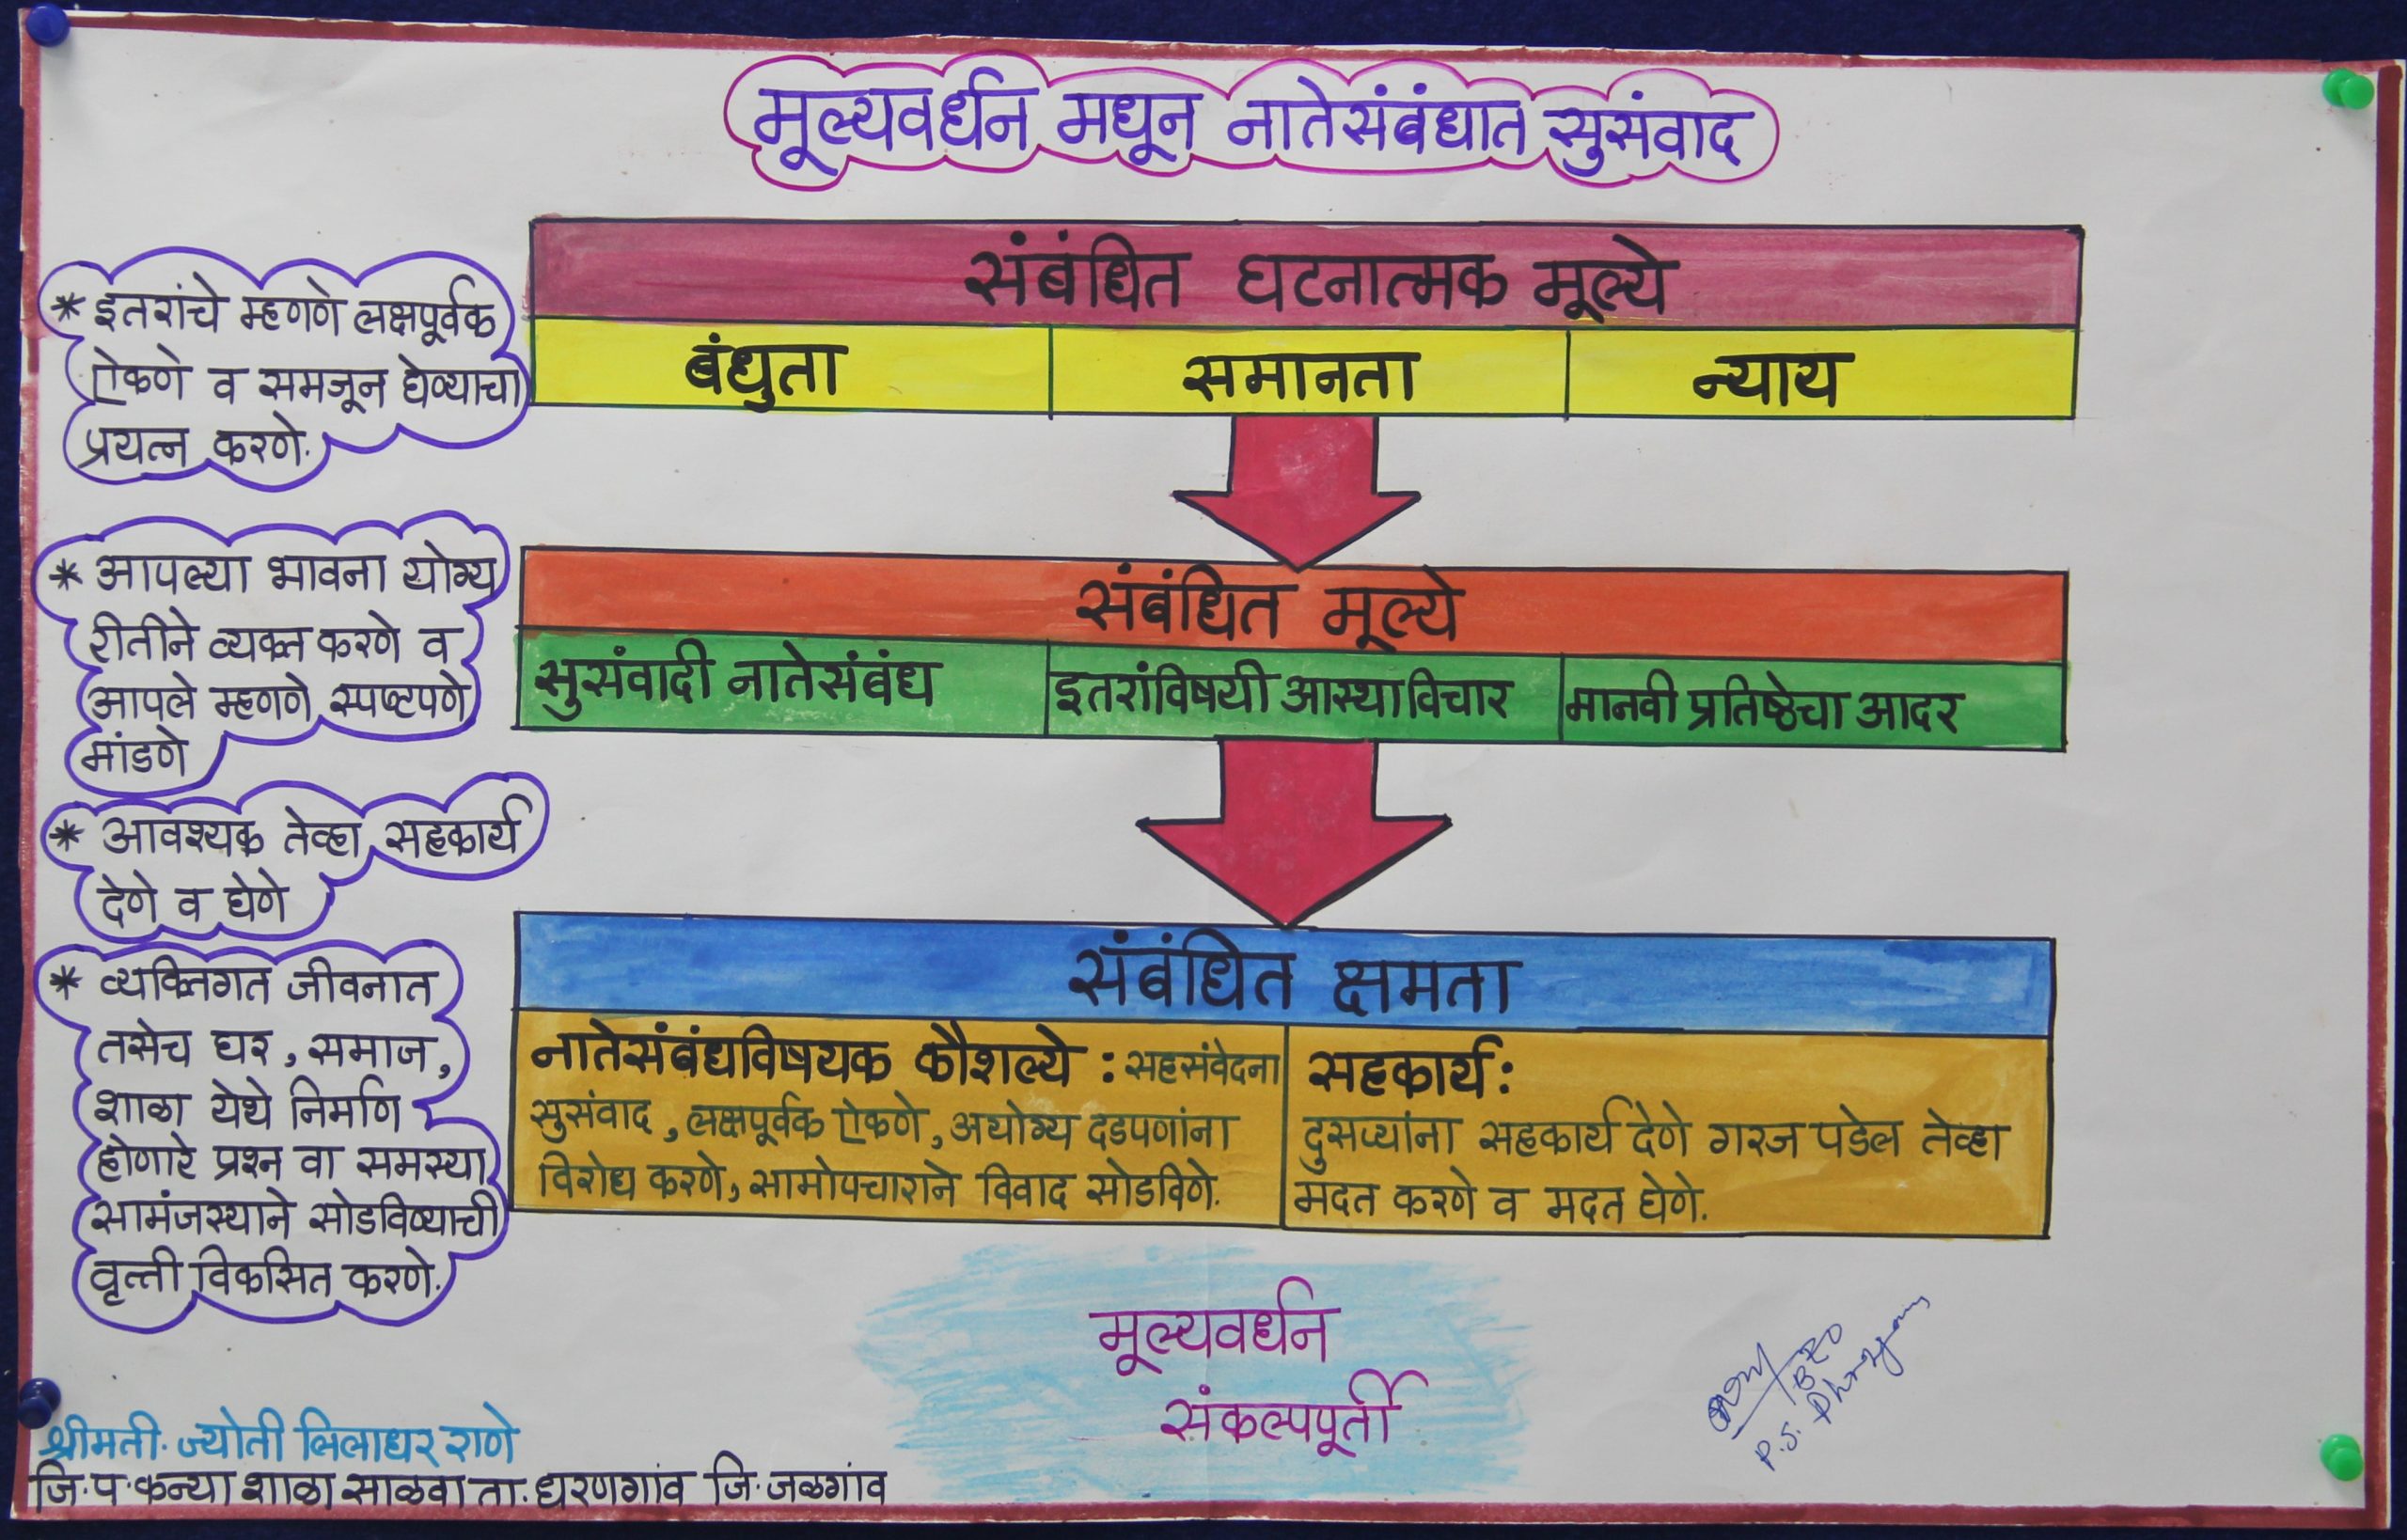 मूल्यवर्धन मधून नातेसंबंधात सुसंवाद
संबंधित घटनात्मक मूल्ये
बंधुता समानता न्याय
संबंधित मूल्ये
सुसंवादी नातेसंबंध इतरांविषयी आस्थाविचार मानवी प्रतिष्ठेचा आदर
संबंधित क्षमता
नातेसंबंधविषयक कौशल्ये : सहसंवेदना
सुसंवाद, लक्षपूर्वक ऐकणे, अयोग्य दडपणांना
विरोध करणे, सामोपचाराने विवाद सोडविणे.
सहकार्य:
दुसऱ्यांना सहकार्य देणे गरज पडेल तेव्हा
मदत करणे व मदत घेणे.
* इतरांचे म्हणणे लक्षपूर्वक
ऐकणे व समजून घेण्याचा
प्रयत्न करणे.
* आपल्या भावना योग्य
रीतीने व्यक्त करणे व
आपले म्हणणे स्पष्टपणे
मांडणे
* आवश्यक तेव्हा सहकार्य
देणे व घेणे
* व्यक्तिगत जीवनात
तसेच घर, समाज,
शाळा येथे निर्माण
होणारे प्रश्न वा समस्या
सामंजस्याने सोडविण्याची
वृत्ती विकसित करणे.
मूल्यवर्धन
संकल्पपूर्ती
श्रीमती. ज्योती लिलाधर राणे
जि.प.कन्या शाळा साळवा ता. धरणगांव जि. जळगांव
BEO
P.S.